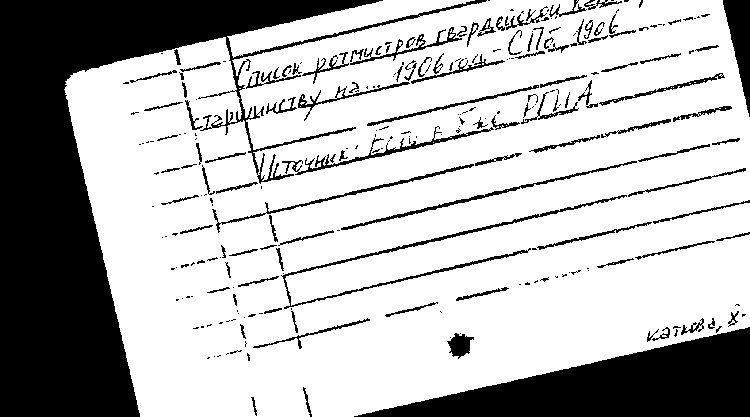 Список ротмистров гвардейской
старшинству на... 1906 год. - СПб, 1906
Источник: Есть в РГИА
Каткова, X-